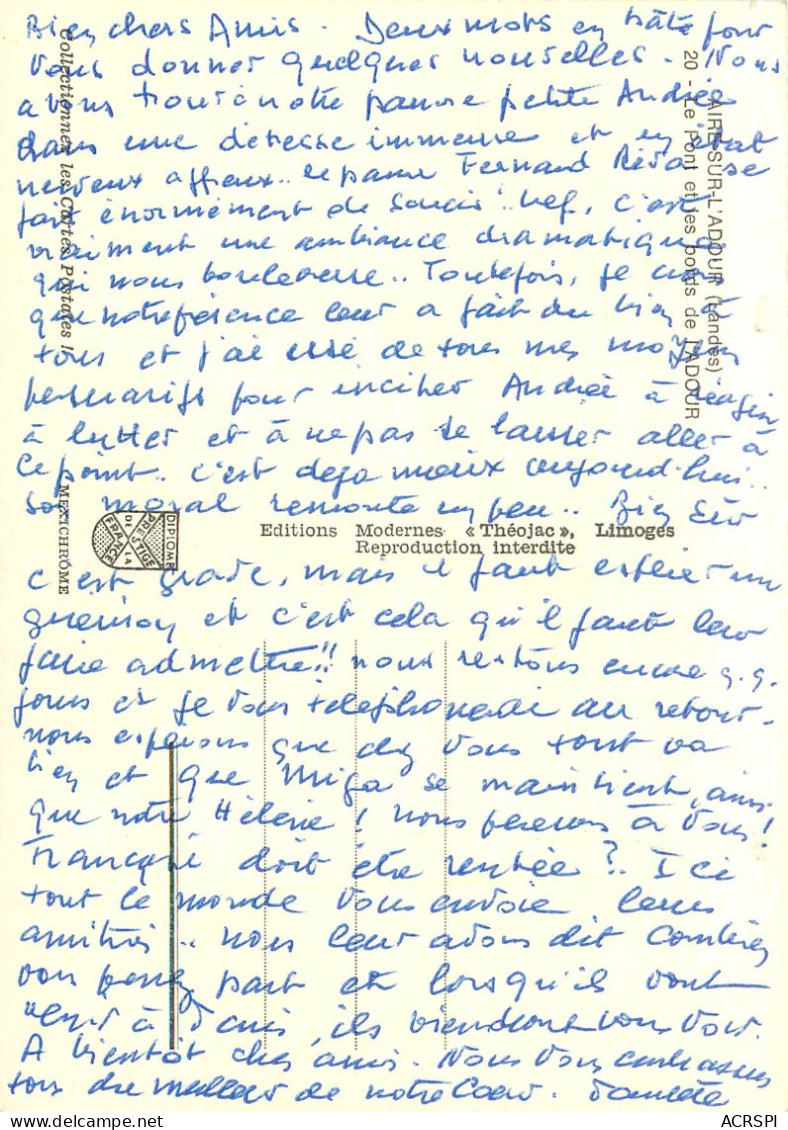 Bien chers Amis. Deux mots en hâte pour
vous donner quelques nouvelles. Nous
avons trouvé notre pauvre petite Andrée
dans une détresse immense et en état
nerveux affreux.. le pauvre Fernand se
fait énormément de soucis. bref, c'est
vraiment une ambiance dramatique
qui nous bouleverse.. Toutefois, je crois
que notre présence leur a fait du bien à
tous et j'ai usé de tous mes moyens
persuasifs pour inciter Andrée à réagir
à lutter et à ne pas se laisser aller à
ce point. c'est déjà mieux aujourd'hui..
son moral remonte un peu.. Bien sûr
c'est grave, mais il faut espérer une
guérison et c'est cela qu'il faut leur
faire admettre!! nous restons encore q.q.
jours et je vous téléphonerai au retour.
nous espérons que chez vous tout va
bien et que se maintient, ainsi
que notre Hélène! Nous pensons à vous!
Françoise doit être rentrée?. Ici
tout le monde vous envoie leurs
amitiés.. nous leur avons dit combien
vous prenez part et lorsqu'ils vont
à Paris, ils viendront vous voir.
A bientôt chers amis. Nous vous embrassons
tous du meilleur de notre Coeur.
AIRE-SUR-L'ADOUR (Landes)
20 - Le Pont et les bords de l'ADOUR
Collectionnez les Cartes Postales !
MEXICHROME
DIPLOME
PRESTIGE
DE LA
FRANCE
Editions Modernes «Théojac», Limoges
Reproduction interdite
ACRSPI